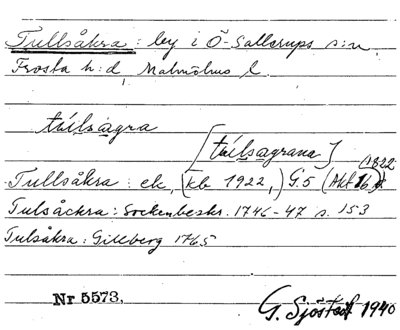 Tullsåkra: by i Ö-Sallerups s:n.
Frosta h:d, Malmöhus l.
túlsagra
[túlsagrana]
Tullsåkra: ek, (kb 1922,) G.5 (Akt 16) (1822
Tulsåckra: Sockenbeskr. 1746-47 s. 153
Tulsåkra: Gilleberg 1765
Nr 5573.
G. Sjöstedt 1940